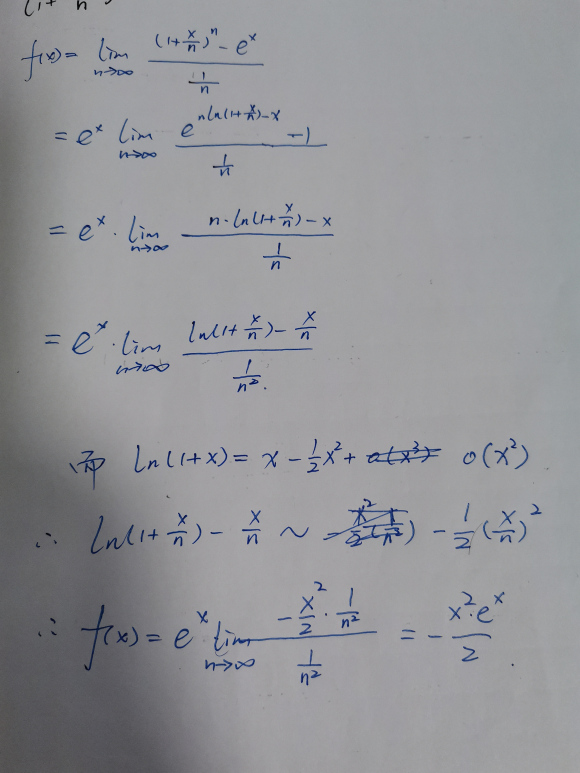 (1+ n
f(x) = lim n→∞ ((1+x/n)^n - e^x) / (1/n)
= e^x lim n→∞ (e^(n ln(1+x/n)-x) - 1) / (1/n)
= e^x · lim n→∞ (n·ln(1+x/n) - x) / (1/n)
= e^x · lim n→∞ (ln(1+x/n) - x/n) / (1/n²).
而 ln(1+x) = x - 1/2 x² + o(x²)
∴ ln(1+x/n) - x/n ~ - 1/2 (x/n)²
∴ f(x) = e^x lim n→∞ (-x²/2 · 1/n²) / (1/n²) = - x²·e^x / 2 .